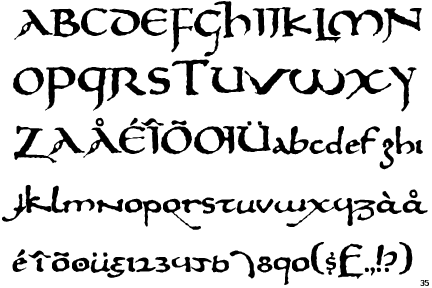 ABCDEFGHIJKLMN
OPQRSTUVWXY
ZÀÅÉÎÕØÜabcdefghi
jklmnopqrstuvwxyzàå
éîõøü&1234567890($£.,!?)
35